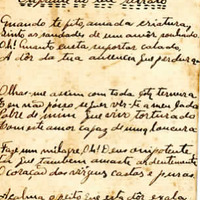 Quando te fito, amada criatura,
Sinto as saudades de um amôr sonhado.
Oh! Quanto custa suportar calado,
A dôr da tua ausencia que perdura
Olhar-me assim com toda esta ternura
E eu não posso siquer ver-te a meu lado
Pobre de mim que vivo torturado
Com este amor capaz de uma loucura.
Faze um milagre, Oh! Deus onipotente
Faz que tambem amado ardentemente
O coração das virgens castas e puras.
Acalma o peito que esta dôr exala